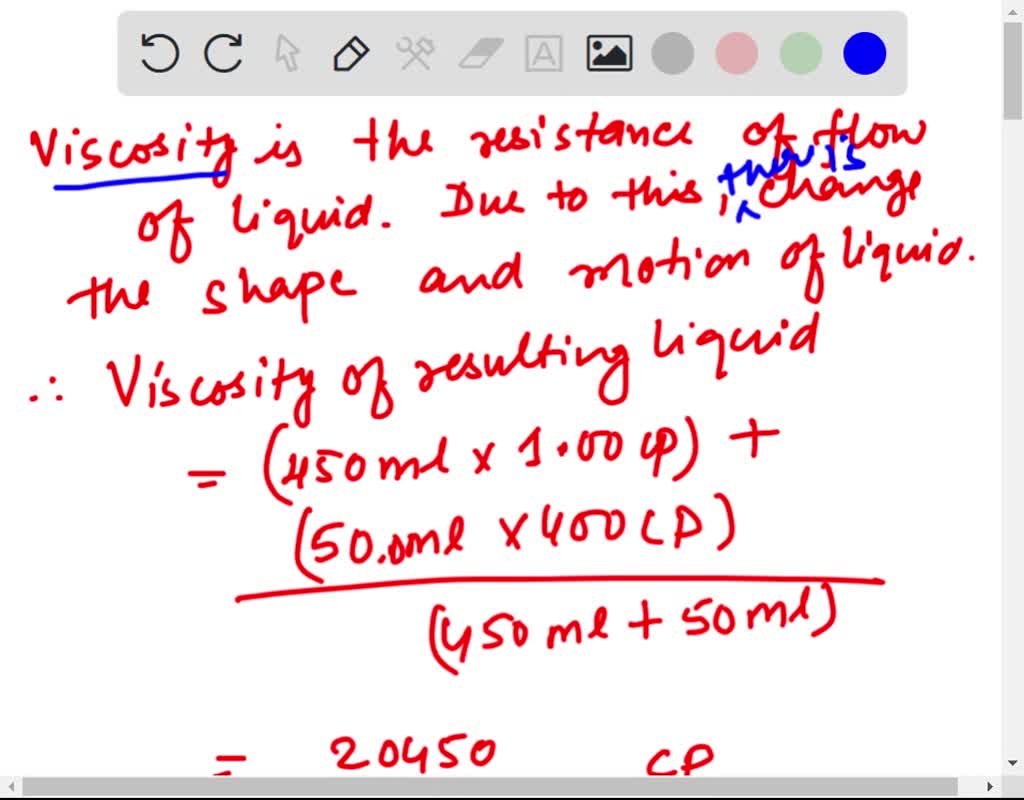 Viscosity is the resistance of flow
there is
of liquid. Due to this, ^ change
the shape and motion of liquid.
∴ Viscosity of resulting liquid
= (450 ml x 1.00 cp) +
(50.0ml x 400 CP)
(450 ml + 50 ml)
= 20450 CP